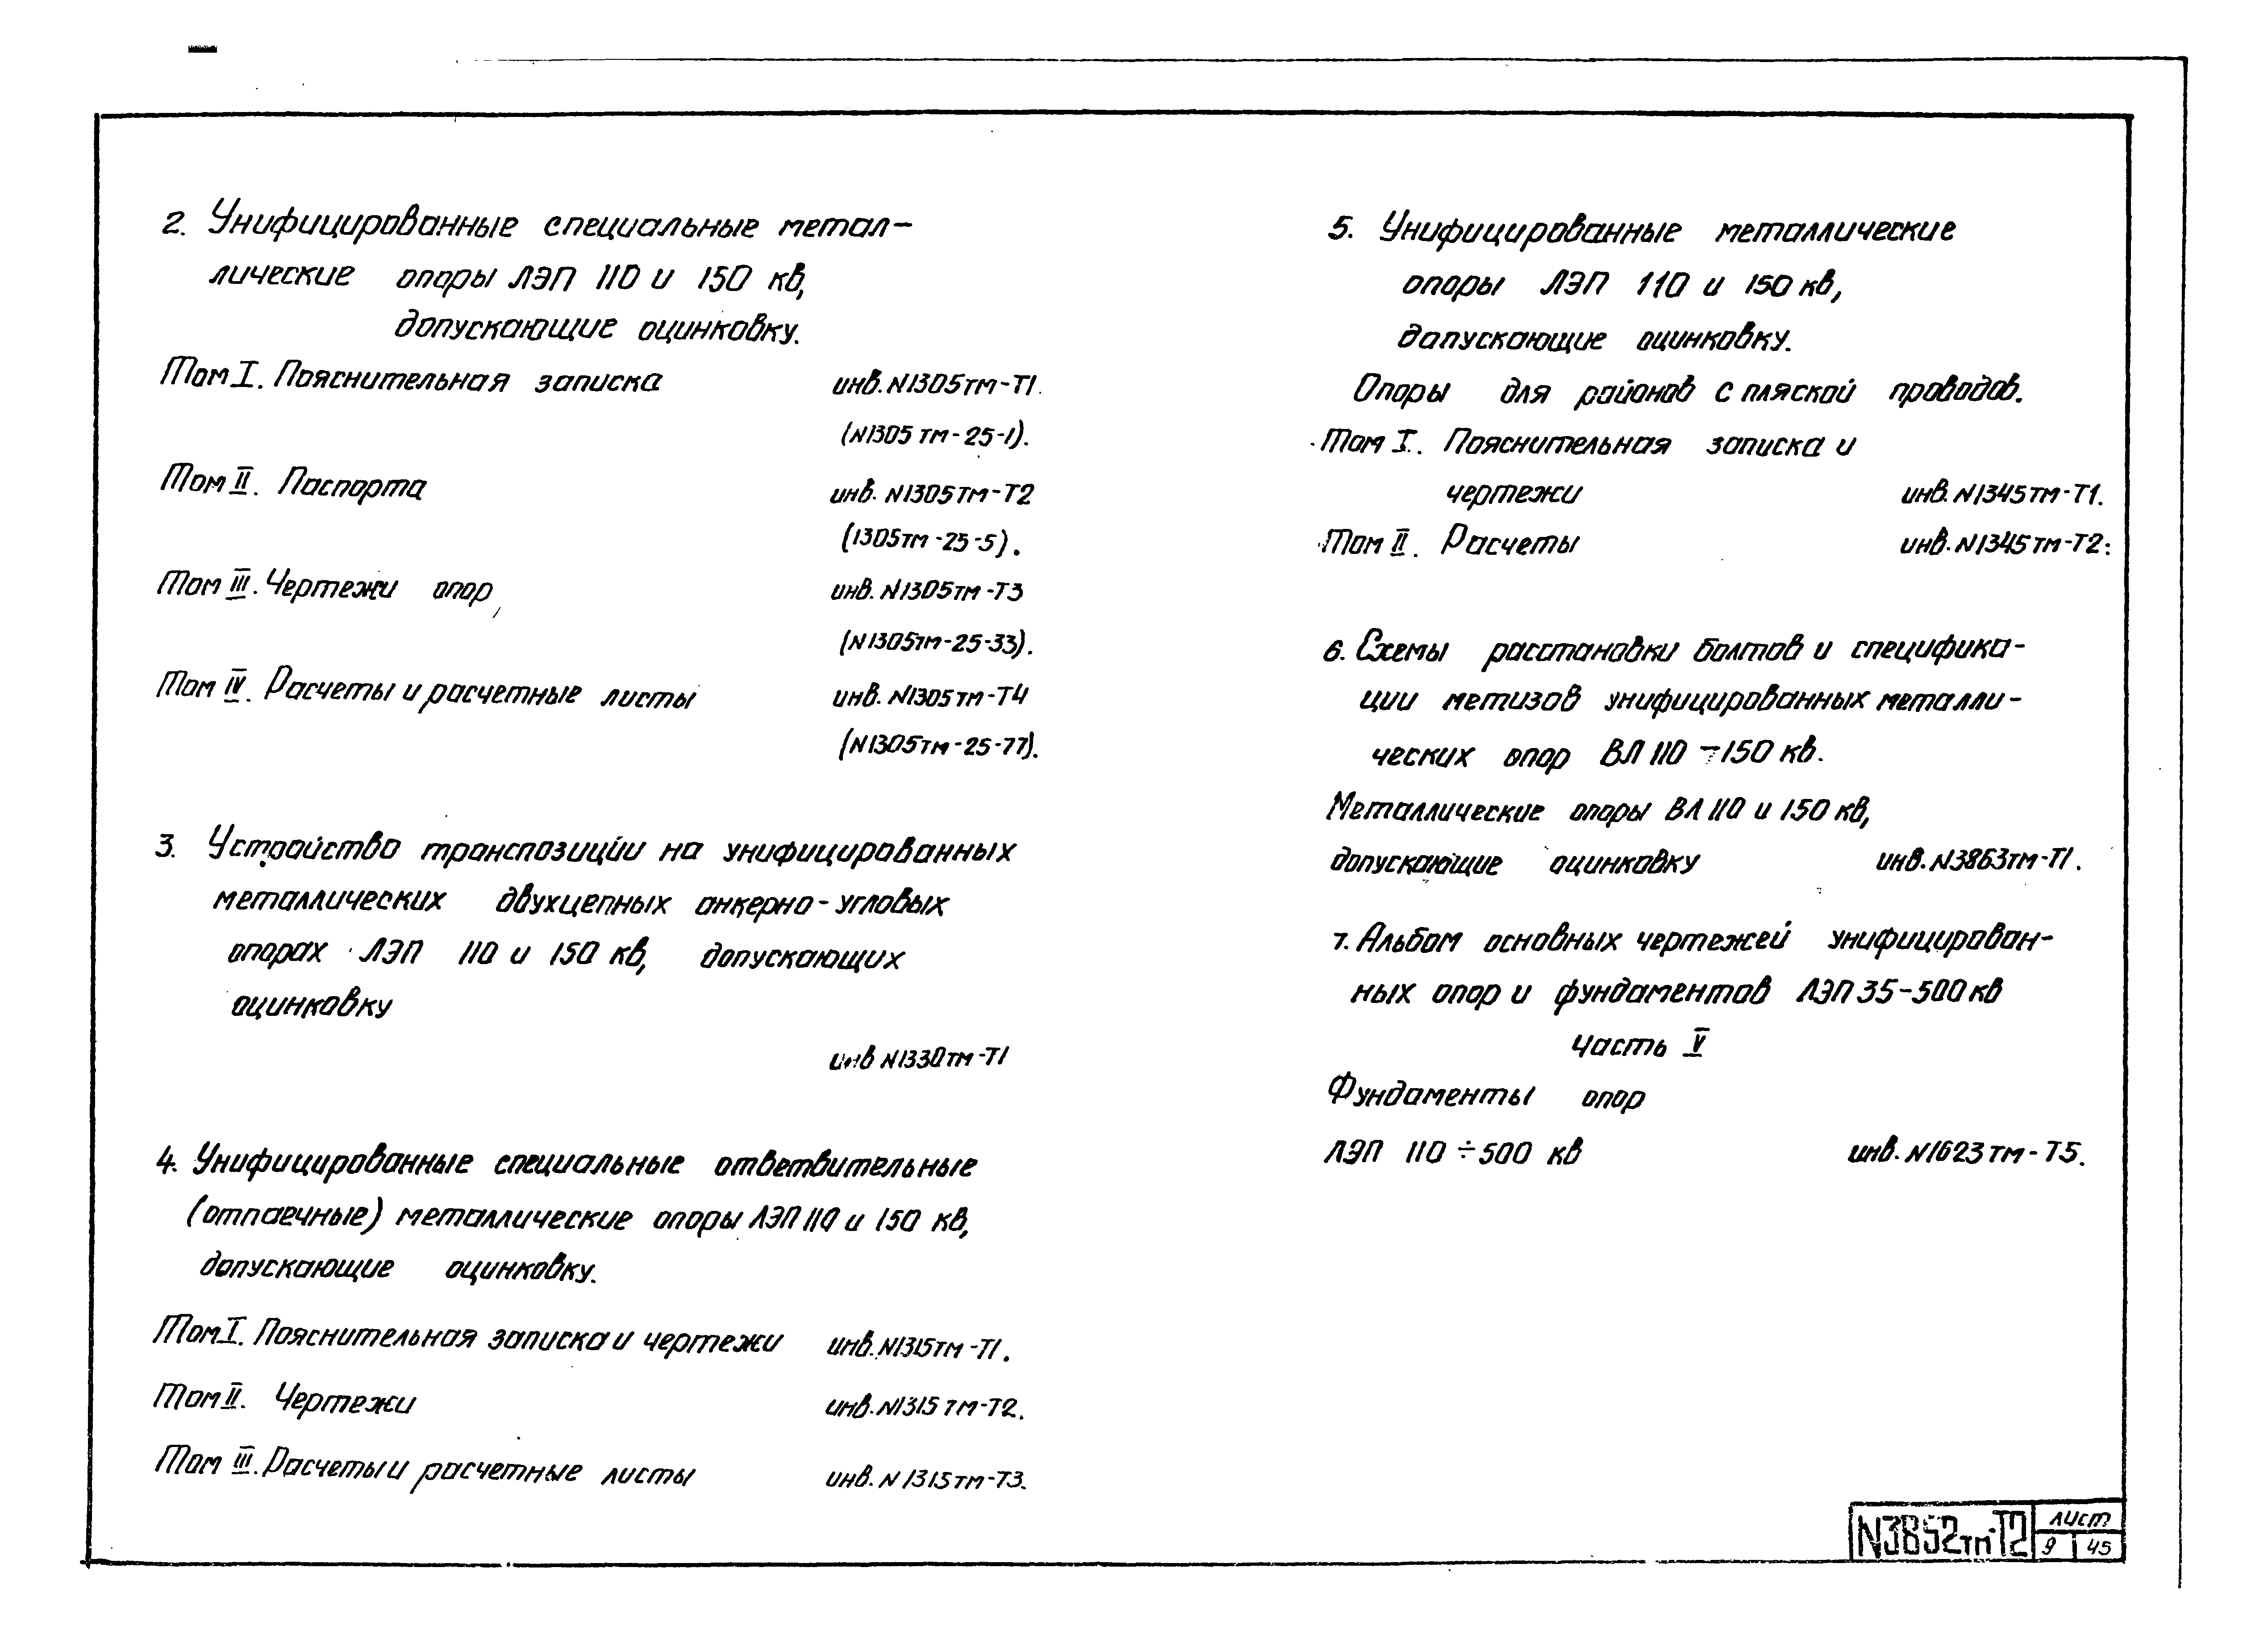 2. Унифицированные специальные метал-
лические опоры ЛЭП 110 и 150 кв,
допускающие оцинковку.
Том I. Пояснительная записка инв. N1305тм-Т1.
(N1305 тм-25-1).
Том II. Паспорта инв. N1305тм-Т2
(1305тм-25-5).
Том III. Чертежи опор, инв. N1305тм-Т3
(N1305тм-25-33).
Том IV. Расчеты и расчетные листы инв. N1305тм-Т4
(N1305тм-25-77).
3. Устройство транспозиции на унифицированных
металлических двухцепных анкерно-угловых
опорах ЛЭП 110 и 150 кв, допускающих
оцинковку
инв N1330тм-Т1
4. Унифицированные специальные ответвительные
(отпаечные) металлические опоры ЛЭП 110 и 150 кв,
допускающие оцинковку.
Том I. Пояснительная записка и чертежи инв. N1315тм-Т1.
Том II. Чертежи инв. N1315 тм-Т2.
Том III. Расчеты и расчетные листы инв. N1315тм-Т3.
5. Унифицированные металлические
опоры ЛЭП 110 и 150 кв,
допускающие оцинковку.
Опоры для районов с пляской проводов.
Том I. Пояснительная записка и
чертежи инв. N1345тм-Т1.
Том II. Расчеты инв. N1345тм-Т2.
6. Схемы расстановки болтов и специфика-
ции метизов унифицированных металли-
ческих опор ВЛ 110-150 кв.
Металлические опоры ВЛ 110 и 150 кв,
допускающие оцинковку инв. N3863тм-Т1.
7. Альбом основных чертежей унифицирован-
ных опор и фундаментов ЛЭП 35-500 кв
часть V
Фундаменты опор
ЛЭП 110 ÷ 500 кв инв. N1623 тм-Т5.
N3852тм-Т2 лист
9 45